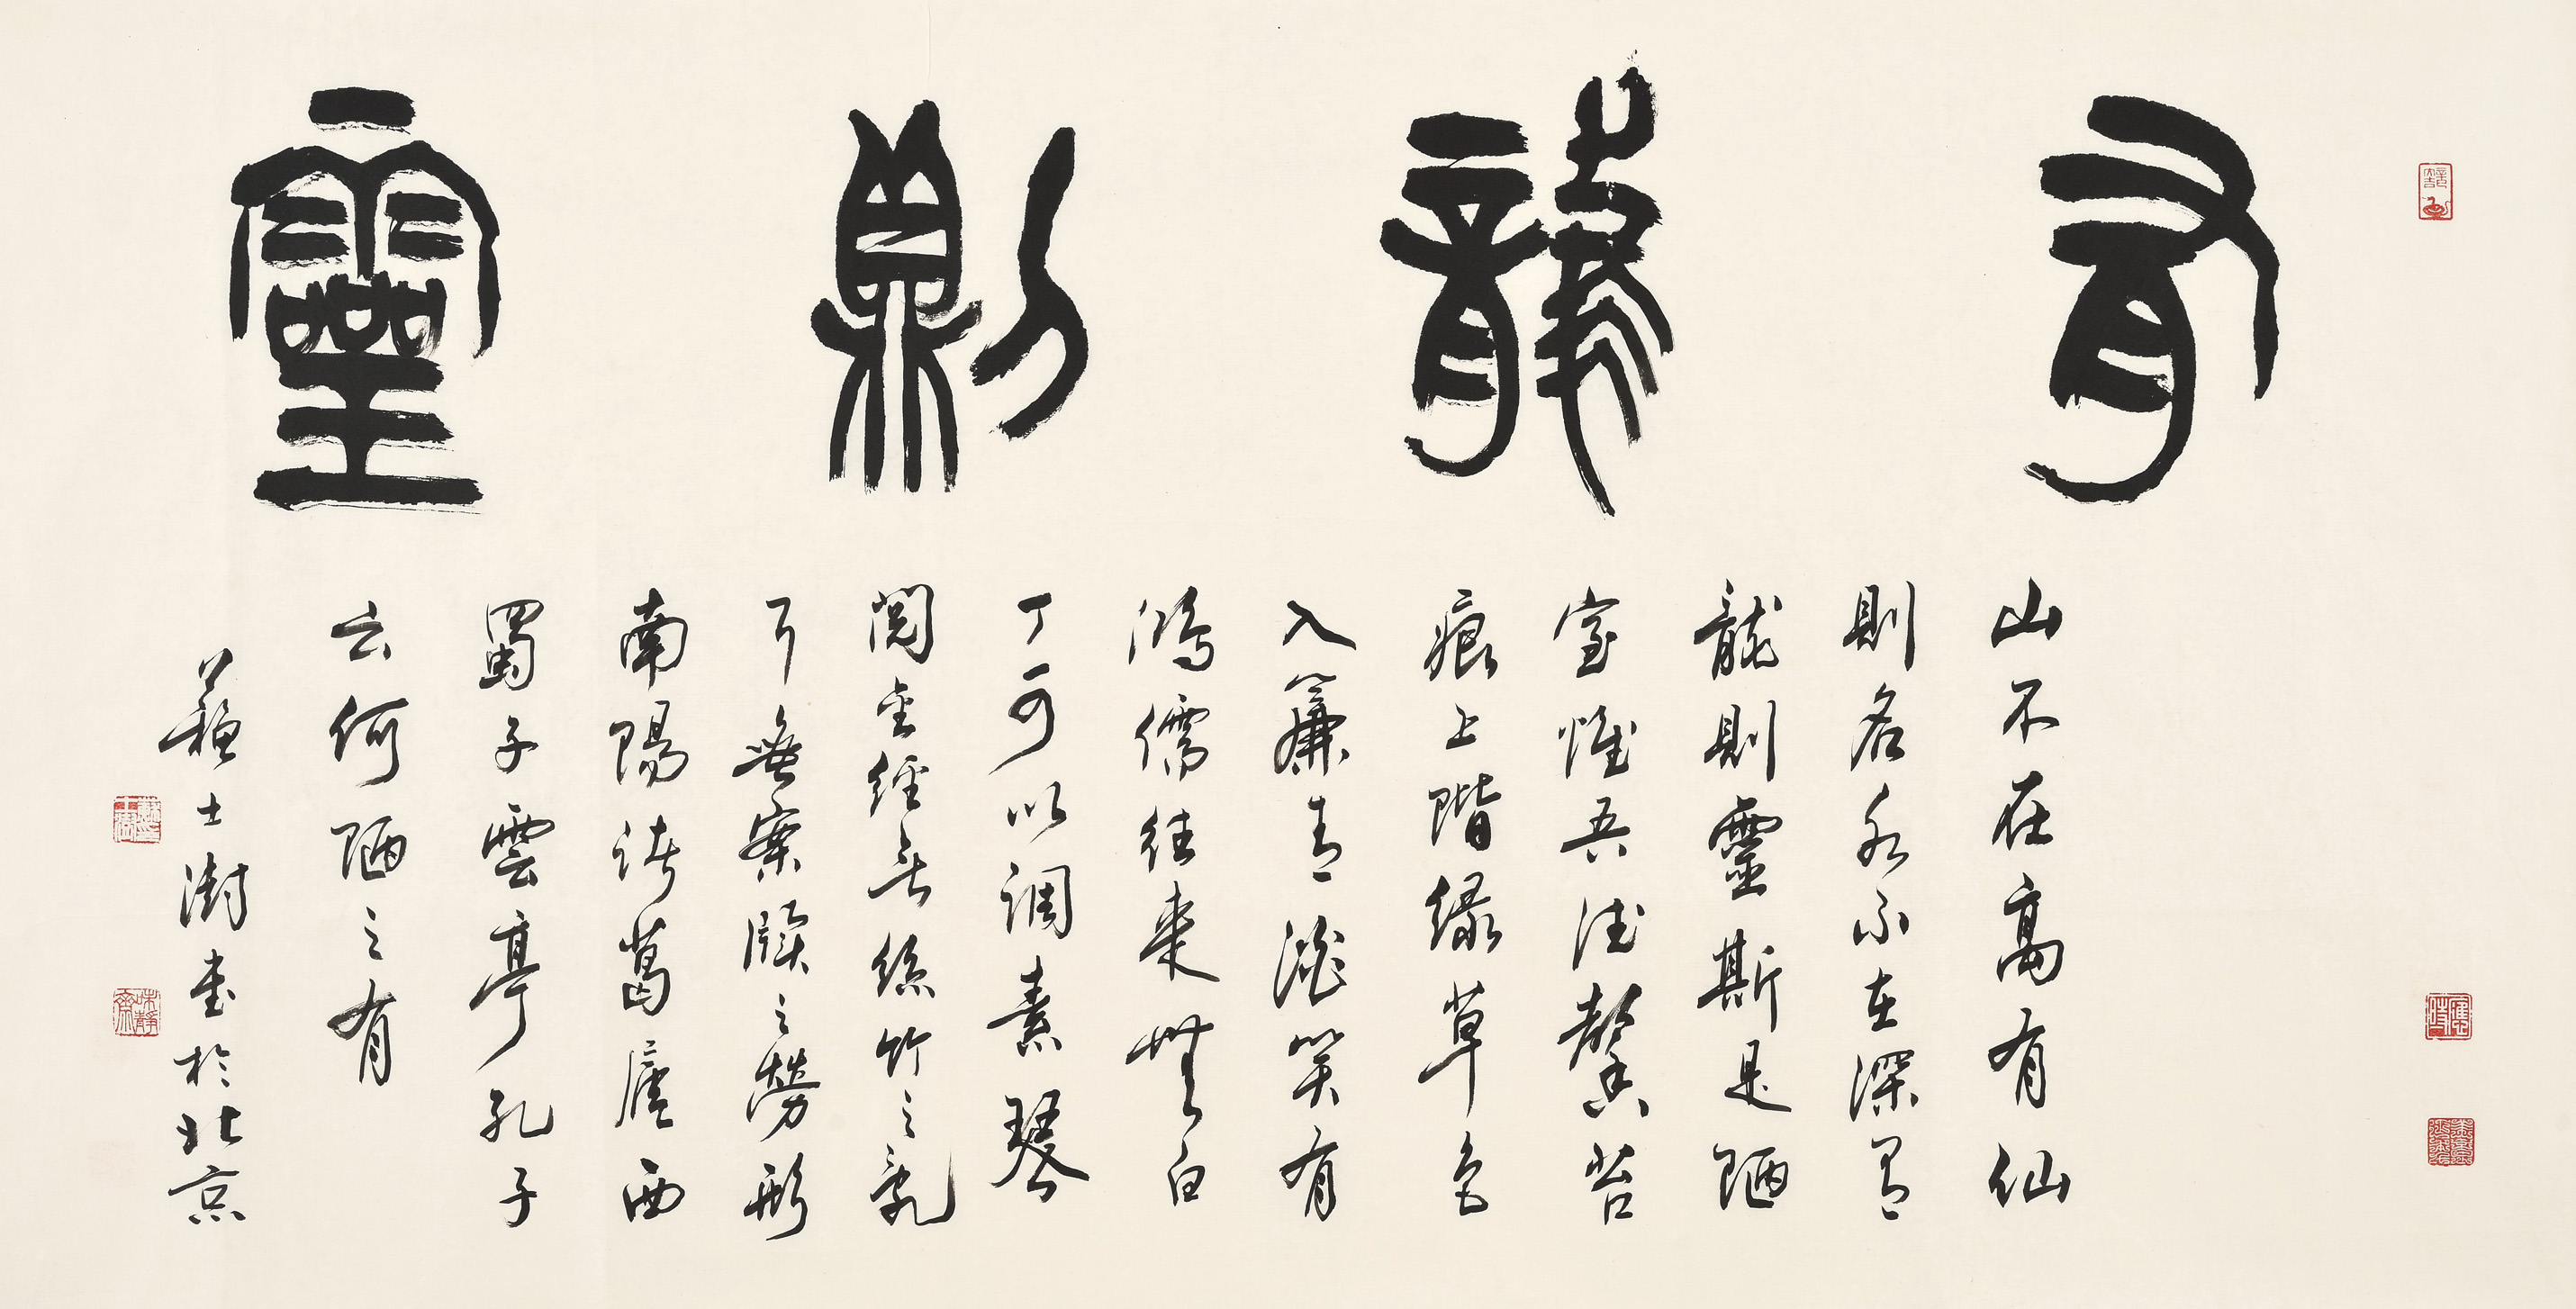 有龍則靈
山不在高有仙
則名水不在深有
龍則靈斯是陋
室惟吾德馨苔
痕上階緑草色
入簾青澹笑有
鴻儒往來無白
丁可以調素琴
閲金經無絲竹之亂
耳無案牘之勞形
南陽諸葛廬西
蜀子雲亭孔子
云何陋之有
蘇士澍書於北京
味靜齋